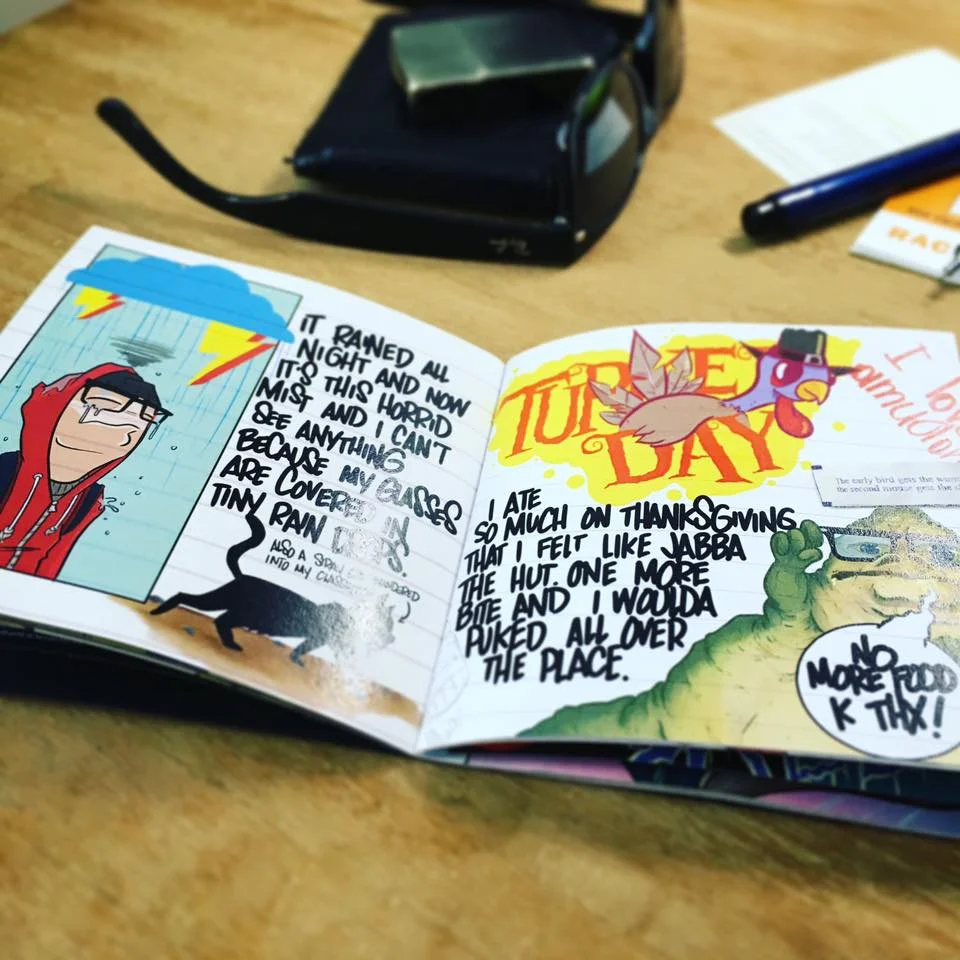 IT RAINED ALL
NIGHT AND NOW
IT'S THIS HORRID
MIST AND I CAN'T
SEE ANYTHING
BECAUSE MY GLASSES
ARE COVERED IN
TINY RAIN DROPS.
ALSO A STRAY CAT WANDERED
INTO MY
TURKEY
DAY
I
The early bird gets the
the second mouse gets the
I ATE
SO MUCH ON THANKSGIVING
THAT I FELT LIKE JABBA
THE HUT. ONE MORE
BITE AND I WOULDA
PUKED ALL OVER
THE PLACE.
NO
MORE FOOD
K THX!
RAC